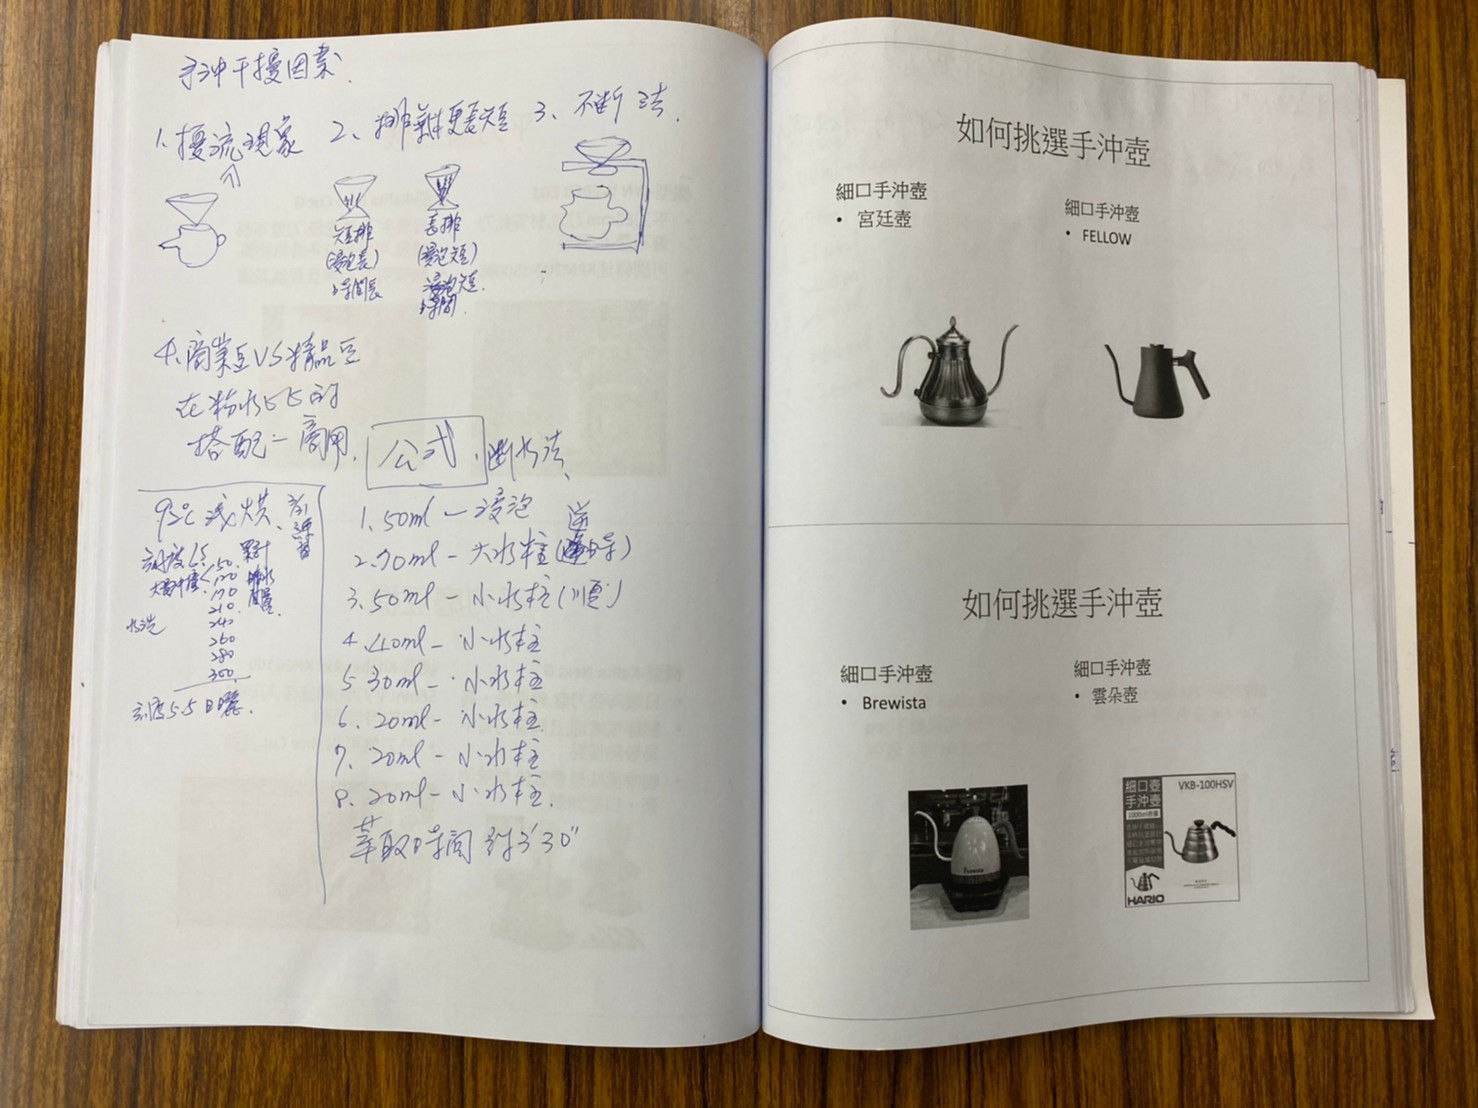 手沖干擾因素
1、擾流現象
2、排氣更短
3、不斷法
短排
(浸泡長)
時間長
長排
(浸泡短)
浸泡短
時間
4、商業豆VS精品豆
在粉水比的
搭配一商用
公式、斷水法
92℃淺烘
刻度
累計
50
120
170
210
240
260
280
300
水洗
刻度5.5 日曬
1、50ml－浸泡
2、70ml－大水柱(逆時)
3、50ml－小水柱(順)
4、40ml－小水柱
5、30ml－小水柱
6、20ml－小水柱
7、20ml－小水柱
8、20ml－小水柱
萃取時間 到3'30"
如何挑選手沖壺
細口手沖壺
• 宮廷壺
細口手沖壺
• FELLOW
如何挑選手沖壺
細口手沖壺
• Brewista
細口手沖壺
• 雲朵壺
細口壺
手沖壺
VKB-100HSV
HARIO